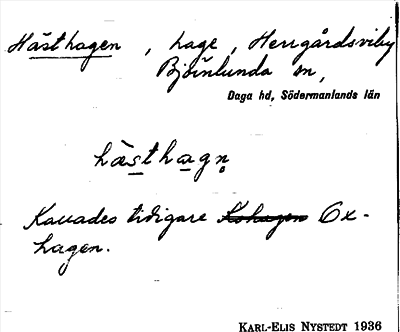 Hästhagen, hage, Herrgårdsviby
Björnlunda sn,
Daga hd, Södermanlands län
hästhagn̥
Kallades tidigare Kohagen Ox-
hagen.
KARL-ELIS NYSTEDT 1936